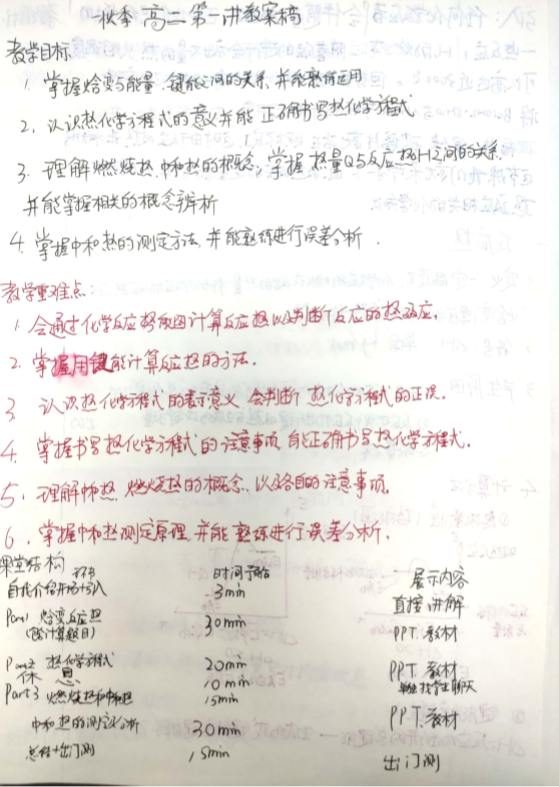 秋季高二第一讲教案稿
教学目标
1. 掌握焓变与能量、键能之间的关系,并能熟练运用
2. 认识热化学方程式的意义并能正确书写热化学方程式
3. 理解燃烧热、中和热的概念,掌握热量Q与反应热H之间的关系.
并能掌握相关的概念辨析
4. 掌握中和热的测定方法,并能熟练进行误差分析.
教学重难点:
1. 会通过化学反应势能图计算反应热以及判断反应的热效应.
2. 掌握用键能计算反应热的方法.
3 认识热化学方程式的表示意义 会判断热化学方程式的正误.
4. 掌握书写热化学方程式的注意事项,能正确书写热化学方程式.
5. 理解中和热、燃烧热的概念,以及各自的注意事项.
6. 掌握中和热测定原理,并能熟练进行误差分析.
课堂结构
环节 时间预估 展示内容
自我介绍开场+引入 3min 直接讲解
Part1 焓变反应热 30min PPT.教材
(能计算题目)
Part2 热化学方程式 20min PPT 教材
休息 10min 找学生聊天
Part3 燃烧热和中和热 15min PPT.教材
中和热的测定分析 30min
总结+出门测 15min 出门测